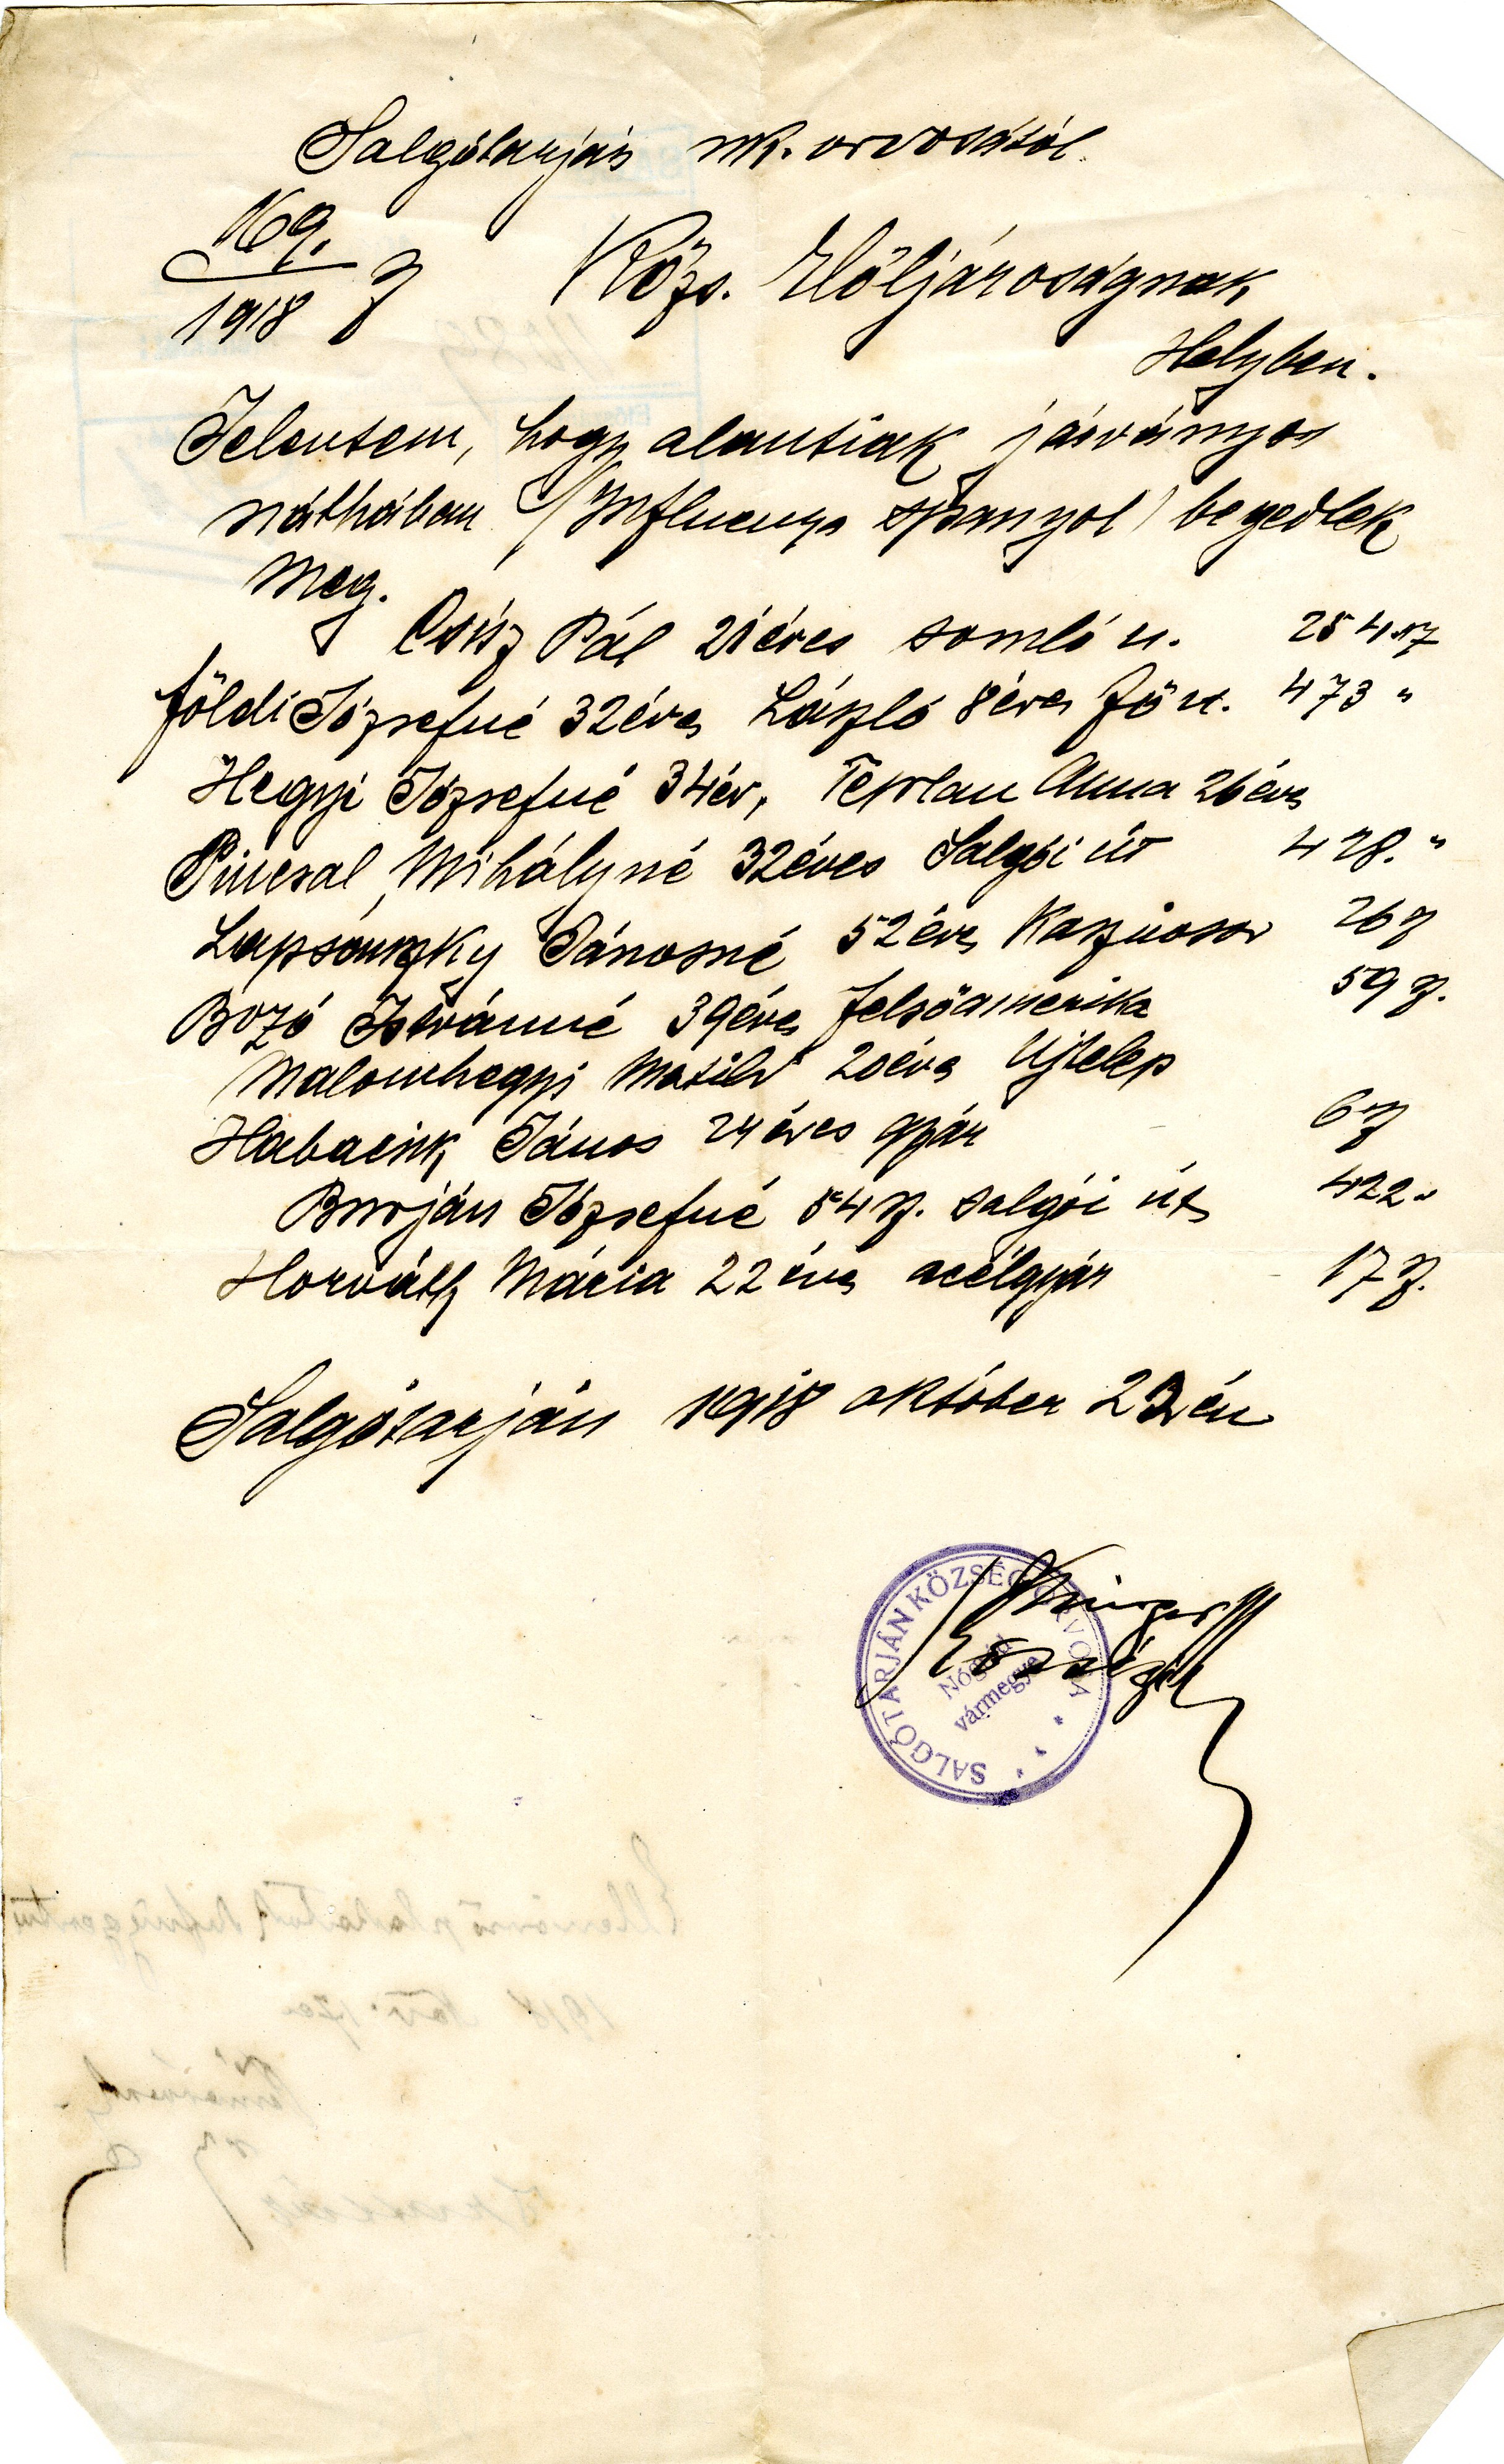 Salgótarján nk. orvosától
169.
1918
Közs. Elöljároságnak
Helyben.
Jelentem, hogy alantiak járványos
náthában (Influenza spanyol) begedtek
meg.
Csúz Pál 21 éves somló u. 254
földi Józsefné 32 éves László 8 éves fö u. 473 "
Hegyi Józsefné 34 év, Anna 26 éves
Pincsal Mihályné 32 éves Salgói út 428. "
Jánosné 52 éves Kaszinosor 26 sz
Bozó Istvánné 39 éves felsöamerika 59 sz.
Malomhegyi Matild 20 éves Ujtelep
János 24 éves gyár 6 sz
Burján Józsefné 54 salgói út 422 "
Horváth Mária 22 éves acélgyár 17 sz.
Salgótarján 1918 október 23 én
SALGÓTARJÁN KÖZSÉG ORVOSA
Nógrád
vármegye